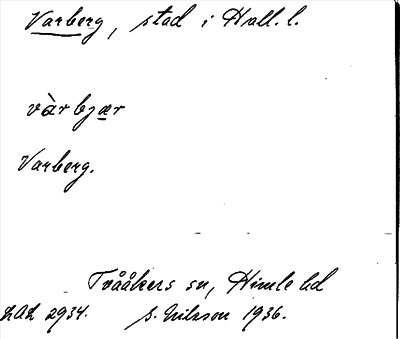 Varberg, stad i Hall. l.
vàrbjær
Varberg.
Tvååkers sn, Himle hd
LAL 2934. S. Nilsson 1936.